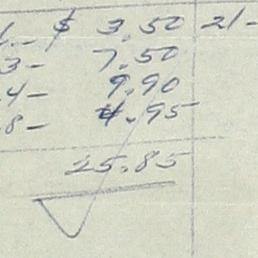 1.- $ 3.50 21-
3- 7.50
.4- 9.90
.8- 4.95
25.85